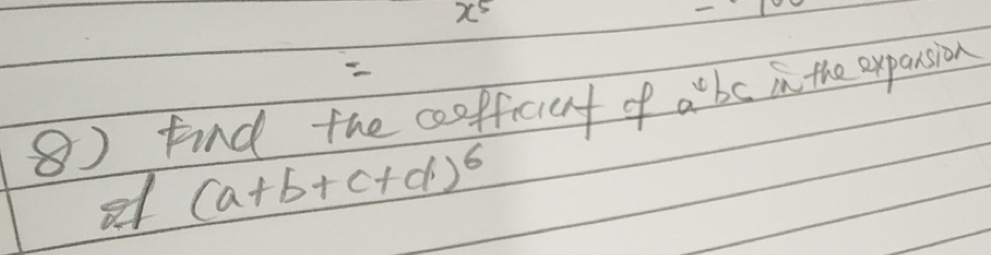 x⁵
=
8) Find the coefficient of a bc in the expansion
of (a+b+c+d)⁶